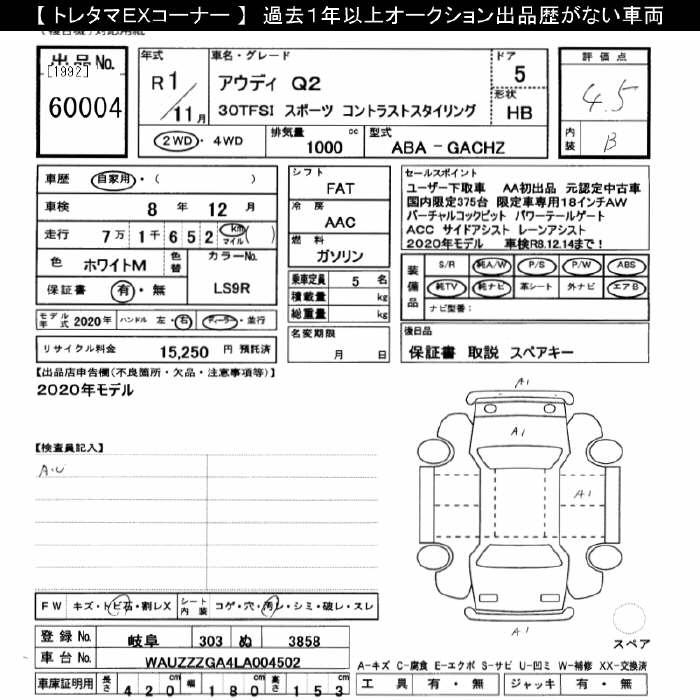 【トレタマEXコーナー】 過去１年以上オークション出品歴がない車両
出品No.
[1992]
60004
年式
R1/11月
車名・グレード
アウディ Q2
30TFSI スポーツ コントラストスタイリング
ドア
5
形状
HB
2WD・4WD
排気量
1000 cc
型式
ABA - GACHZ
評価点
4.5
内装
B
車歴 自家用・( )
車検 8年 12月
走行 7万1千652 km マイル ( )
色 ホワイトM
色替
カラーNo.
LS9R
保証書 有・無
シフト
FAT
冷房
AAC
燃料
ガソリン
乗車定員 5 名
積載量 kg
総重量 kg
名変期限
月 日
セールスポイント
ユーザー下取車 AA初出品 元認定中古車
国内限定375台 限定車専用18インチAW
バーチャルコックピット パワーテールゲート
ACC サイドアシスト レーンアシスト
2020年モデル 車検R8.12.14まで!
装備品
S/R 純A/W P/S P/W ABS
純TV 純ナビ 革シート 外ナビ エアB
ナビ型番:
後日品
保証書 取説 スペアキー
モデル年式 2020年 ハンドル 左・右 ディーラー・並行
リサイクル料金 15,250 円 預託済
【出品店申告欄(不良箇所・欠品・注意事項等)】
2020年モデル
【検査員記入】
A・U
A1
A1
A1
A1
スペア
FW キズ・トビ石・割レX
シート内装 コゲ・穴・汚レ・シミ・破レ・スレ
登録No. 岐阜 303 ぬ 3858
車台No. WAUZZZGA4LA004502
車庫証明用 長さ 420cm 幅 180cm 高さ 153cm
A-キズ C-腐食 E-エクボ S-サビ U-凹ミ W-補修 XX-交換済
工具 有・無 ジャッキ 有・無